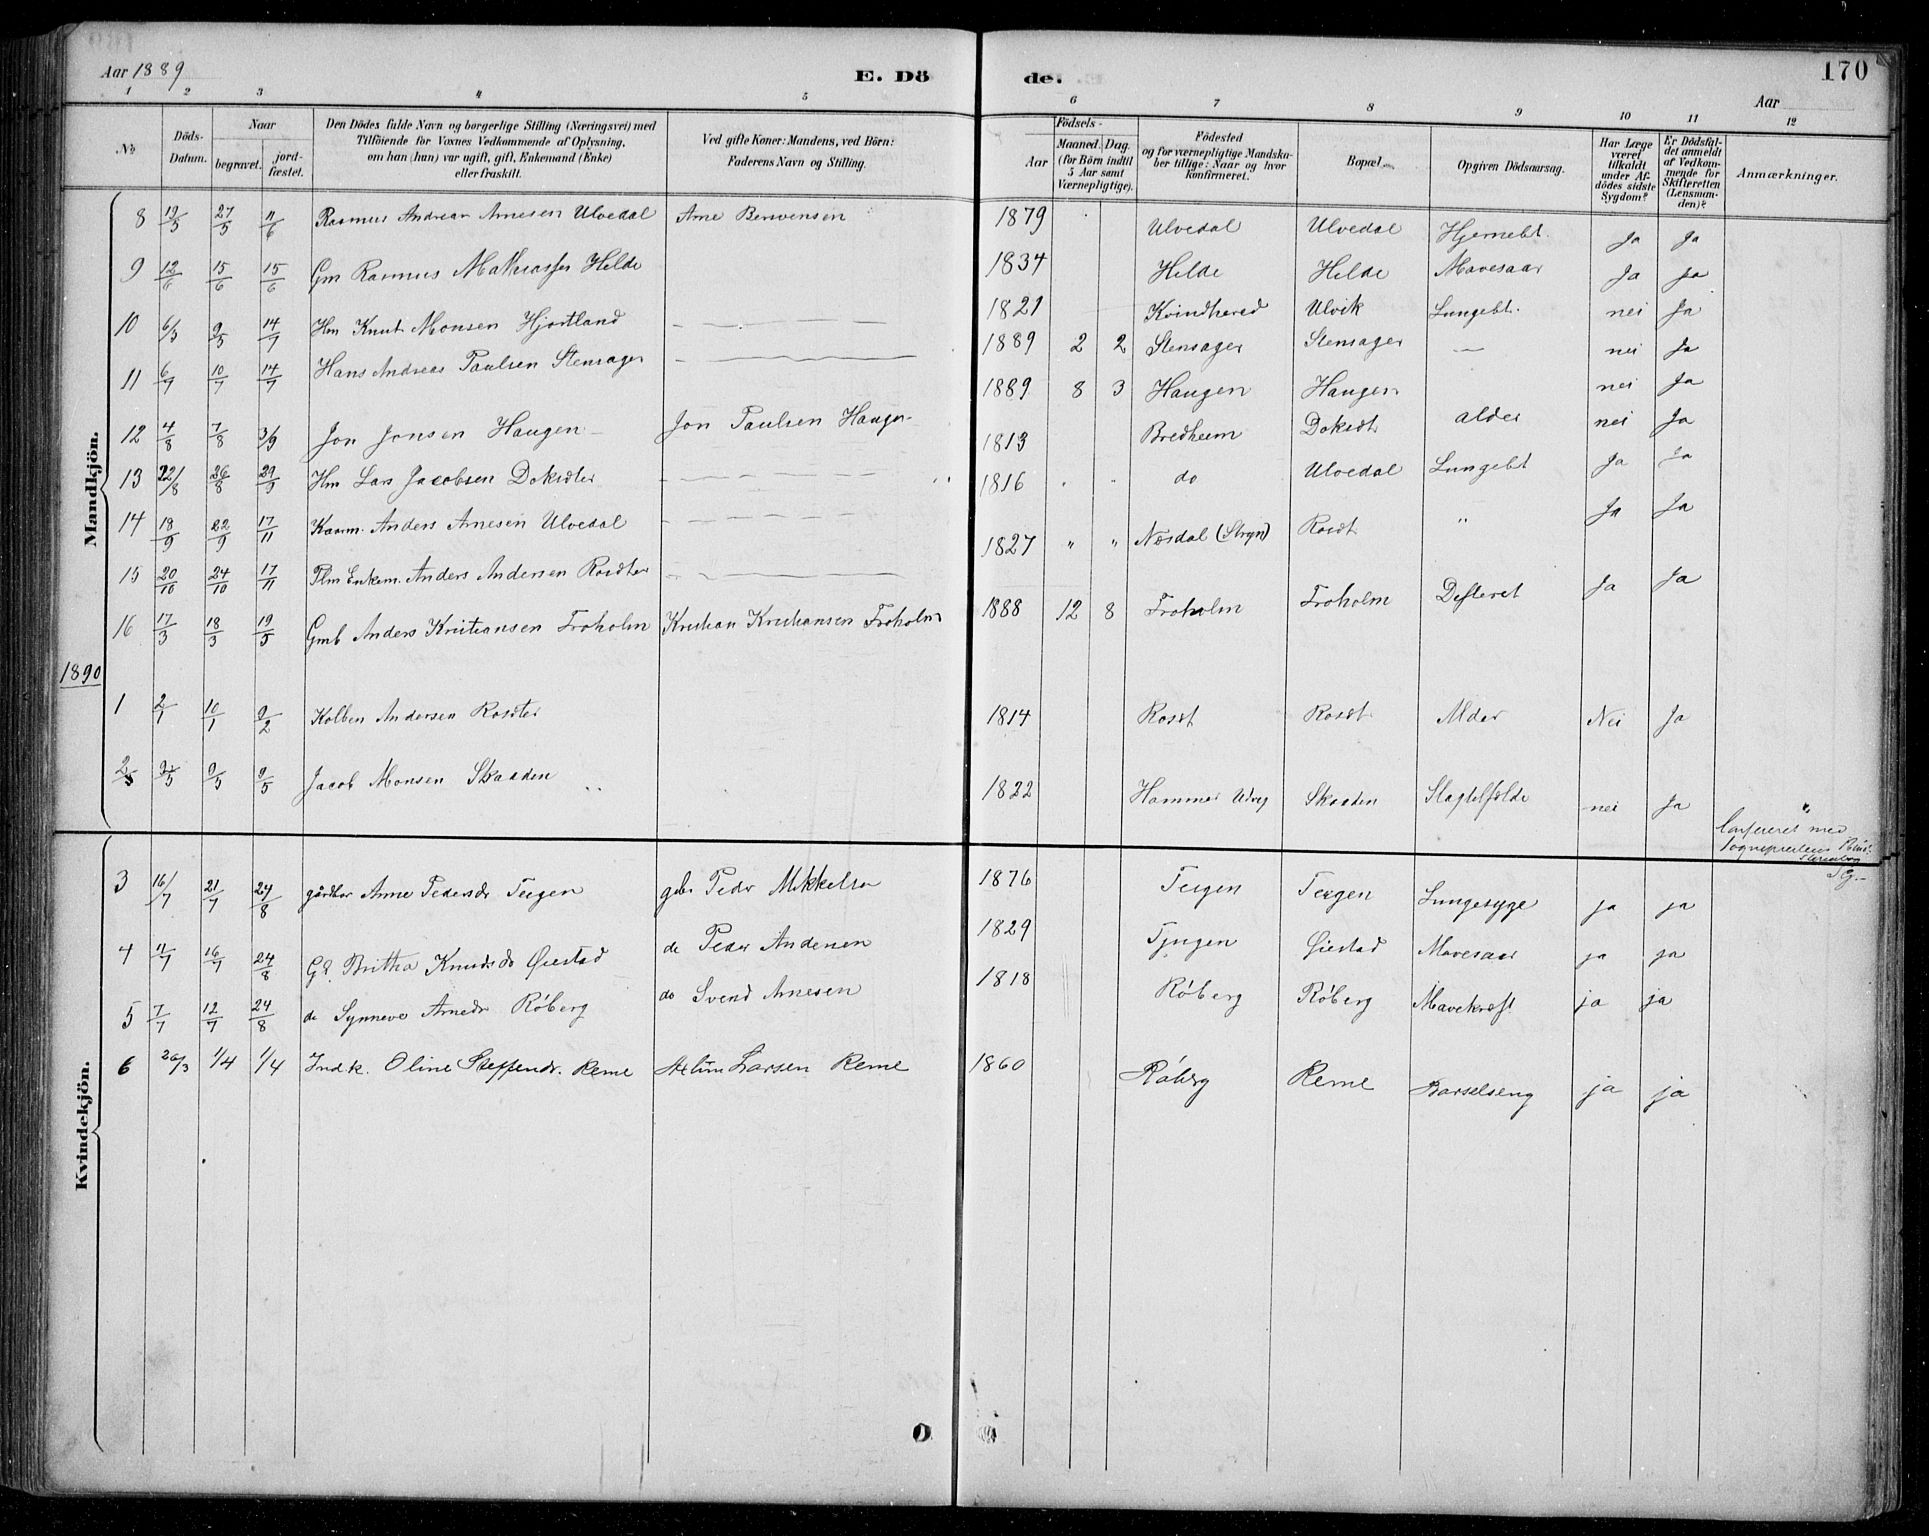 Aar 1889
E. Dö de.
170
Aar
1 2 3 4 5 6 7 8 9 10 11 12
No
Döds-Datum.
Naar
begravet.
jord-fæstet.
Den Dödes fulde Navn og borgerlige Stilling (Næringsvei) med
Tilföiende for Voxnes Vedkommende af Oplysning,
om han (hun) var ugift, gift, Enkemand (Enke)
eller fraskilt.
Ved gifte Koner: Mandens, ved Börn:
Faderens Navn og Stilling.
Födsels-
Aar
Maaned. Dag.
(for Börn indtil
5 Aar samt
Værnepligtige).
Födested
og for værnepligtige Mandska-
ber tillige: Naar og hvor
konfirmeret.
Bopæl.
Opgiven Dödsaarsag.
Har Læge
været
tilkaldt
under Af-
dödes sidste
Sygdom?
Er Dödsfal-
det anmeldt
af Vedkom-
mende for
Skifteretten
(Lensman-
den)?
Anmærkninger.
Mandkjön.
8 19/5 27/5 11/6 Rasmus Andreas Arnesen Ulvedal Arne Bernsensen 1879 Ulvedal Ulvedal Hjernebt. Ja Ja
9 12/6 15/6 15/6 Gm Rasmus Mathiassen Hilde 1834 Hilde Hilde Mavesaar Ja Ja
10 6/5 9/5 14/7 Hm Knut Monsen Hjortland 1821 Kvindhered Ulvik Lungebt. nei Ja
11 6/7 10/7 14/7 Hans Andreas Paulsen Stensager 1889 2 2 Stensager Stensager — nei Ja
12 4/8 7/8 3/9 Jon Jonsen Haugen Jon Paulsen Haugen 1889 8 3 Haugen Haugen nei Ja
13 22/8 26/8 29/9 Hm Lars Jacobsen Dokset 1813 Bredheim Dokset alder nei Ja
14 18/9 22/9 17/11 Kaarm. Anders Arnesen Ulvedal 1816 do Ulvedal Lungebt Ja Ja
15 20/10 24/10 17/11 Flm Enkem. Anders Andersen Rosdter 1827 " " Nosdal (Stryn) Rosdt " Ja Ja
16 17/3 18/3 19/5 Gmb Anders Kristiansen Froholm Kristian Kristiansen Froholm 1888 12 8 Froholm Froholm Defteret Ja Ja
1890
1 2/1 10/1 9/2 Kolben Andersen Rosdter 1814 Rosdt Rosdt Alder Nei Ja
2 /5 9/5 9/5 Jacob Monsen Skaaden 1822 Hammer Skaaden Slagtilfælde nei Ja
Confereret med
Sogneprestens
Kvindekjön.
3 16/7 21/7 24/8 gårdbr Anne Pedersdr Teigen gbr Peder Mikkelsen 1876 Teigen Teigen Lungesyge ja ja
4 11/7 16/7 24/8 Gd Britha Knudsdr Øiestad do Peder Andersen 1829 Tjugen Øiestad Mavesaar ja ja
5 7/7 12/7 24/8 do Synneve Arnedr Röberg do Svend Arnesen 1818 Röberg Röberg Mavekræft ja ja
6 26/3 1/4 1/4 Indk. Oline Steffendr. Reme Larsen Reme 1860 Röberg Reme Barselseng ja ja